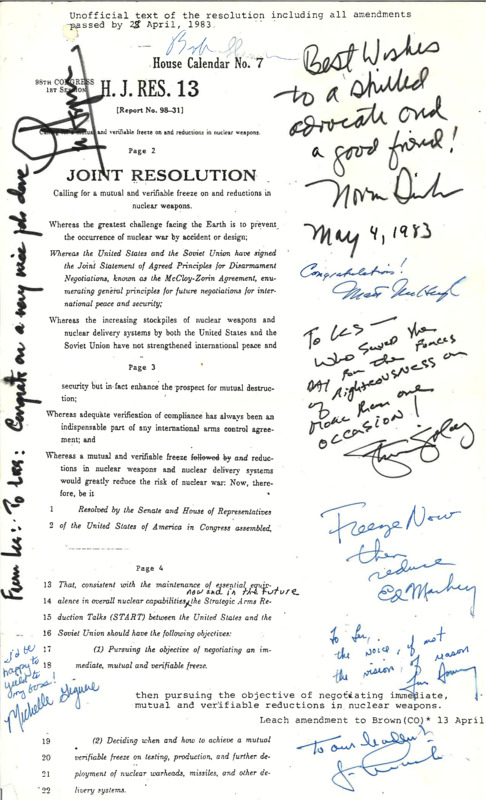 Unofficial text of the resolution including all amendments
passed by 28 April, 1983
House Calendar No. 7
98TH CONGRESS
1ST SESSION
H. J. RES. 13
[Report No. 98-31]
Calling for a mutual and verifiable freeze on and reductions in nuclear weapons.
Page 2
JOINT RESOLUTION
Calling for a mutual and verifiable freeze on and reductions in
nuclear weapons.
Whereas the greatest challenge facing the Earth is to prevent
the occurrence of nuclear war by accident or design;
Whereas the United States and the Soviet Union have signed
the Joint Statement of Agreed Principles for Disarmament
Negotiations, known as the McCloy-Zorin Agreement, enu-
merating general principles for future negotiations for inter-
national peace and security;
Whereas the increasing stockpiles of nuclear weapons and
nuclear delivery systems by both the United States and the
Soviet Union have not strengthened international peace and
Page 3
security but in fact enhance the prospect for mutual destruc-
tion;
Whereas adequate verification of compliance has always been an
indispensable part of any international arms control agree-
ment; and
Whereas a mutual and verifiable freeze followed by and reduc-
tions in nuclear weapons and nuclear delivery systems
would greatly reduce the risk of nuclear war: Now, there-
fore, be it
1 Resolved by the Senate and House of Representatives
2 of the United States of America in Congress assembled,
Page 4
13 That, consistent with the maintenance of essential equiv-
now and in the future
14 alence in overall nuclear capabilities, the Strategic Arms Re-
15 duction Talks (START) between the United States and the
16 Soviet Union should have the following objectives:
17 (1) Pursuing the objective of negotiating an im-
18 mediate, mutual and verifiable freeze.
then pursuing the objective of negotiating immediate,
mutual and verifiable reductions in nuclear weapons.
Leach amendment to Brown(CO)* 13 April
19 (2) Deciding when and how to achieve a mutual
20 verifiable freeze on testing, production, and further de-
21 ployment of nuclear warheads, missiles, and other de-
22 livery systems.
Best Wishes
to a skilled
advocate and
a good friend!
Norm Dicks
May 4, 1983
Congratulations!
To LES —
Who saved the
DAY for the Forces
of Righteousness on
More than one
occasion!
Freeze Now
then
reduce
Ed Markey
To Les,
the voice, if not
the vision, of reason
To our leader!
I'd be
happy to
yield to
my boss!
Michelle
Congrats on a very nice job done